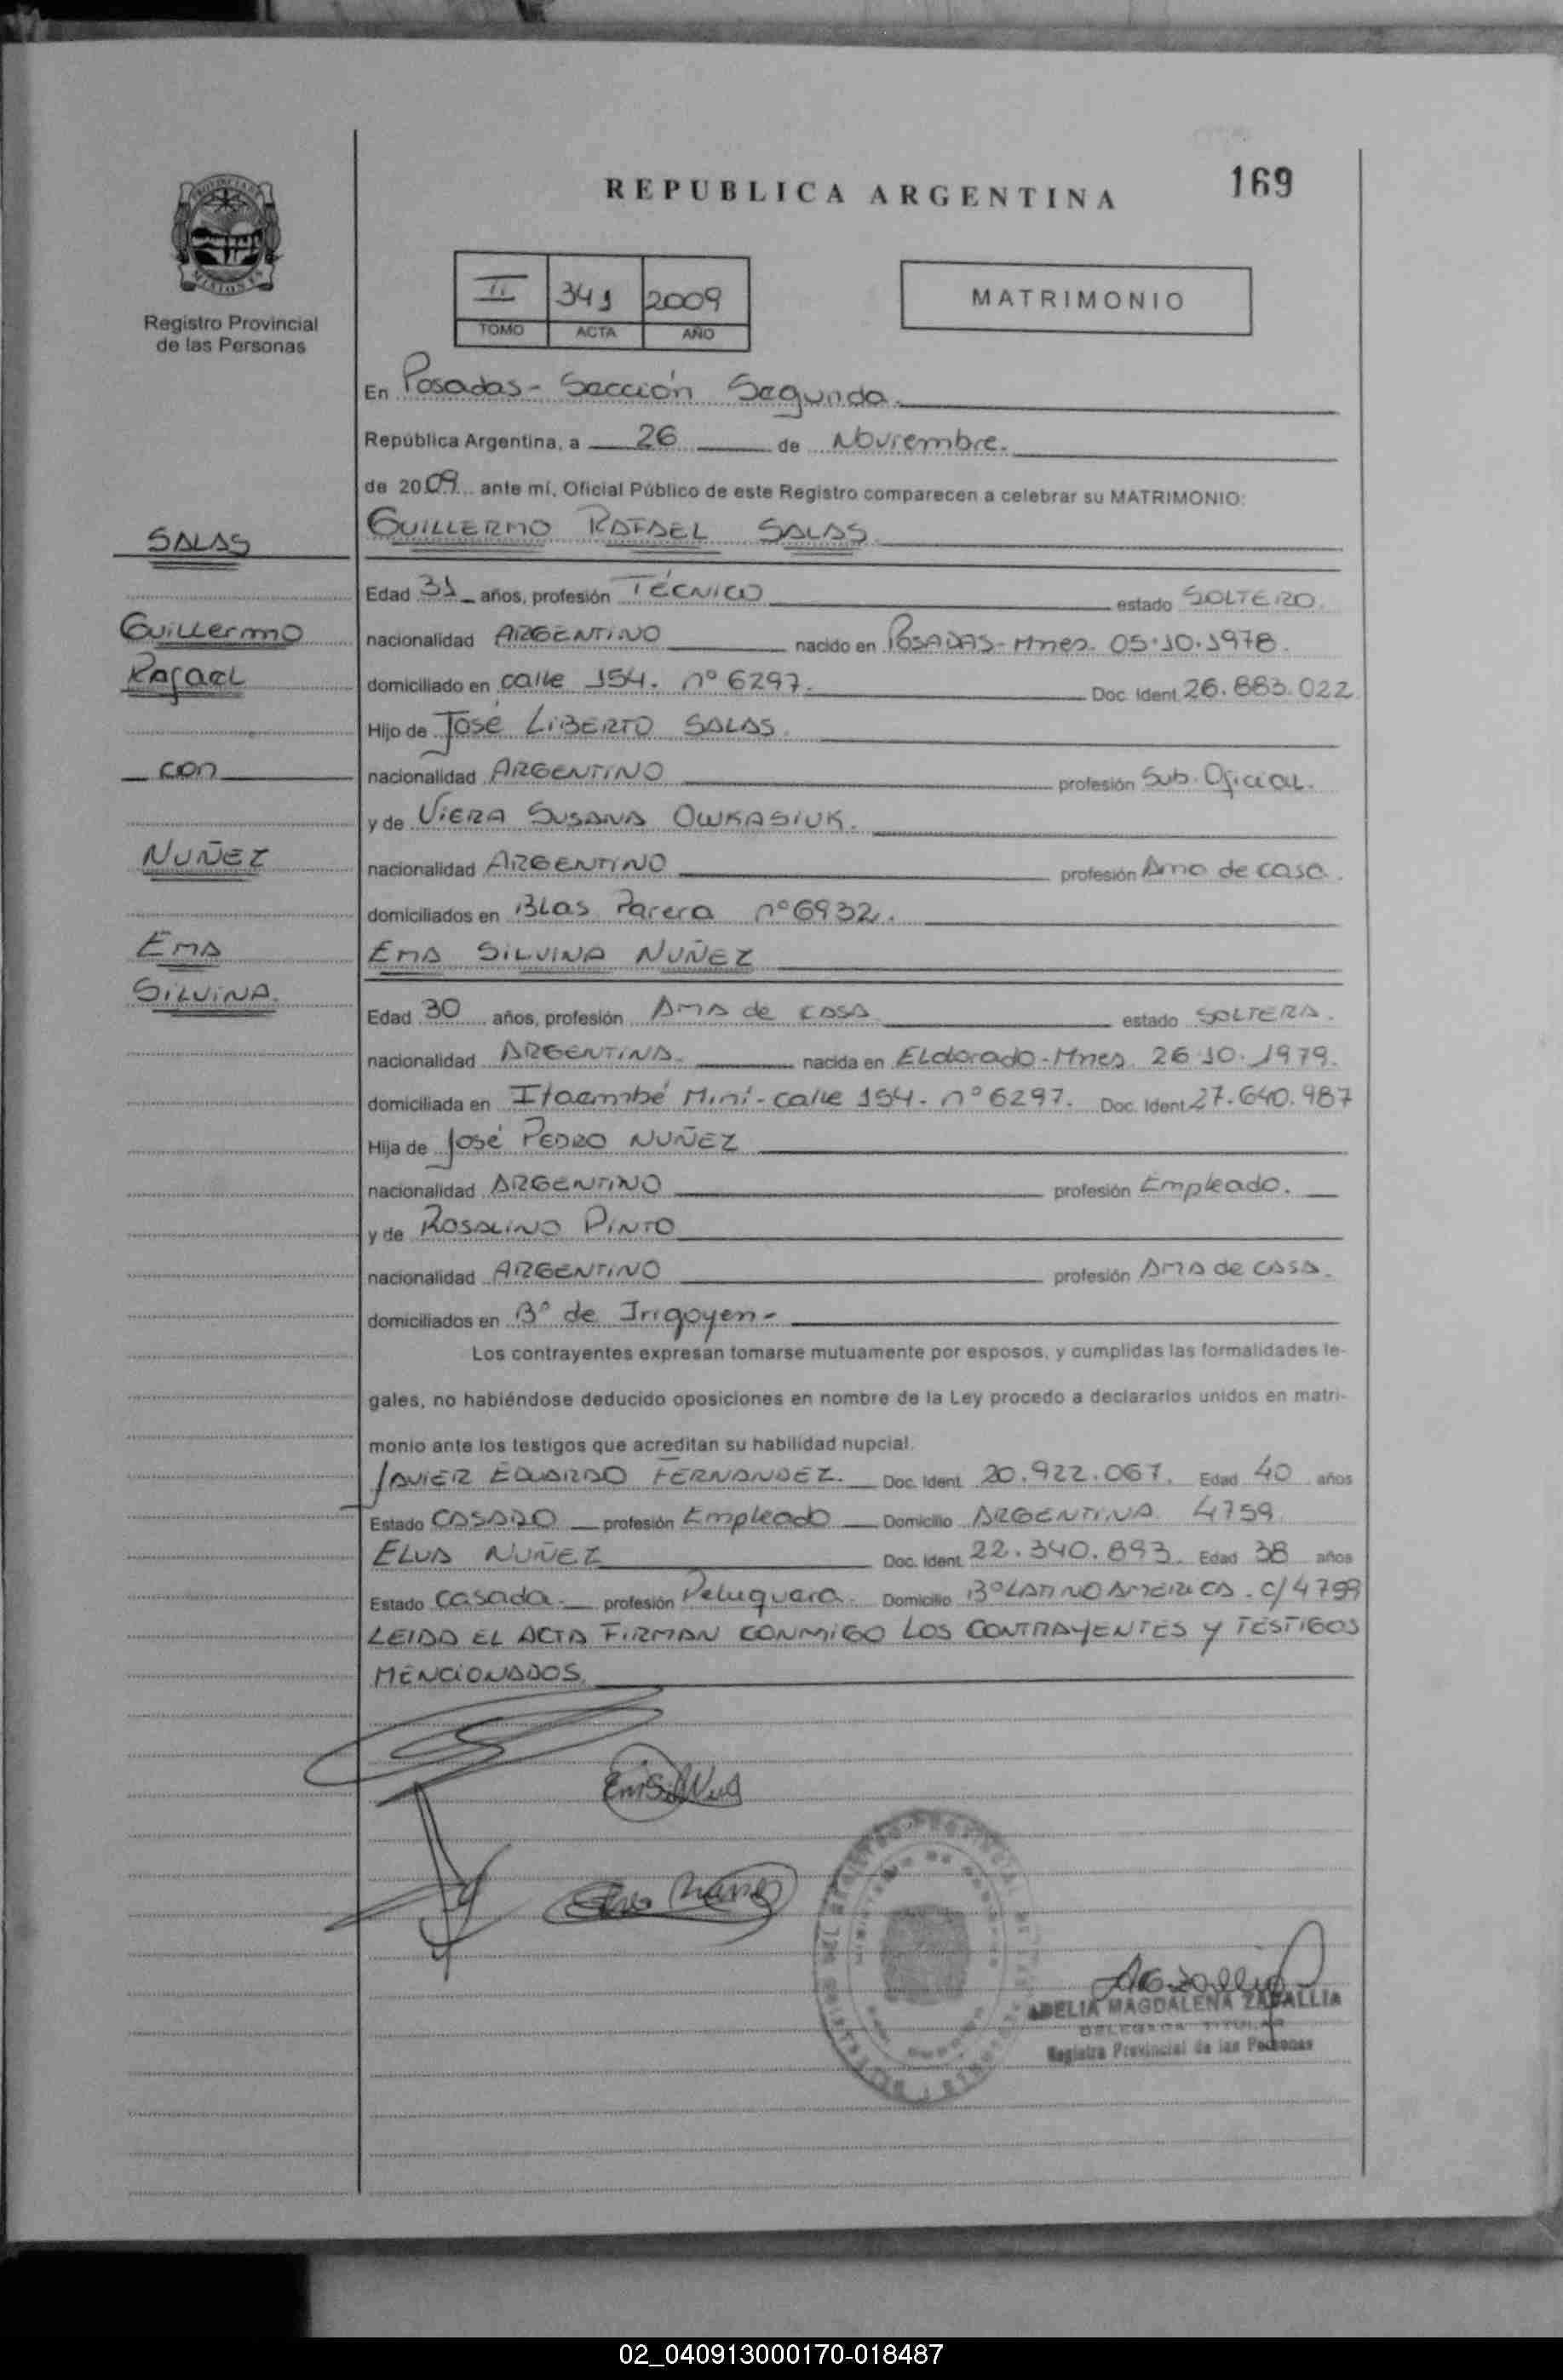 REPUBLICA ARGENTINA
169
Registro Provincial
de las Personas
II 341 2009
TOMO ACTA AÑO
MATRIMONIO
En Posadas - Sección Segunda.
República Argentina, a 26 de Noviembre.
de 2009 ante mí, Oficial Público de este Registro comparecen a celebrar su MATRIMONIO:
SALAS
GUILLERMO RAFAEL SALAS
Edad 31 años, profesión TÉCNICO estado SOLTERO.
Guillermo
nacionalidad ARGENTINO nacido en POSADAS - Mnes. 05.10.1978.
Rafael
domiciliado en calle 154. nº 6297. Doc. Ident. 26.883.022
Hijo de José LIBERTO SALAS.
con
nacionalidad ARGENTINO profesión Sub. Oficial.
y de VIERA SUSANA OWKASIUK.
NUÑEZ
nacionalidad ARGENTINO profesión Ama de casa.
domiciliados en Blas Parera nº 6932.
EMA
EMA SILVINA NUÑEZ
SILVINA.
Edad 30 años, profesión AMA de CASA estado SOLTERA.
nacionalidad ARGENTINA. nacida en Eldorado - Mnes. 26.10.1979.
domiciliada en Itaembé Miní - calle 154. nº 6297. Doc. Ident. 27.640.987
Hija de José PEDRO NUÑEZ
nacionalidad ARGENTINO profesión Empleado.
y de ROSALINO PINTO
nacionalidad ARGENTINO profesión AMA de CASA.
domiciliados en Bº de Irigoyen -
Los contrayentes expresan tomarse mutuamente por esposos, y cumplidas las formalidades le-
gales, no habiéndose deducido oposiciones en nombre de la Ley procedo a declararlos unidos en matri-
monio ante los testigos que acreditan su habilidad nupcial.
JAVIER EDUARDO FERNANDEZ. Doc. Ident. 20.922.067. Edad 40 años
Estado CASADO profesión Empleado Domicilio ARGENTINA 4759
ELVA NUÑEZ Doc. Ident. 22.340.893. Edad 38 años
Estado casada. profesión Peluquera. Domicilio BºLATINOAMERICA. c/4799
LEIDA EL ACTA FIRMAN CONMIGO LOS CONTRAYENTES y TESTIGOS
MENCIONADOS.
ADELIA MAGDALENA ZAFALLIA
DELEGADA TITULAR
Registro Provincial de las Personas
02_040913000170-018487